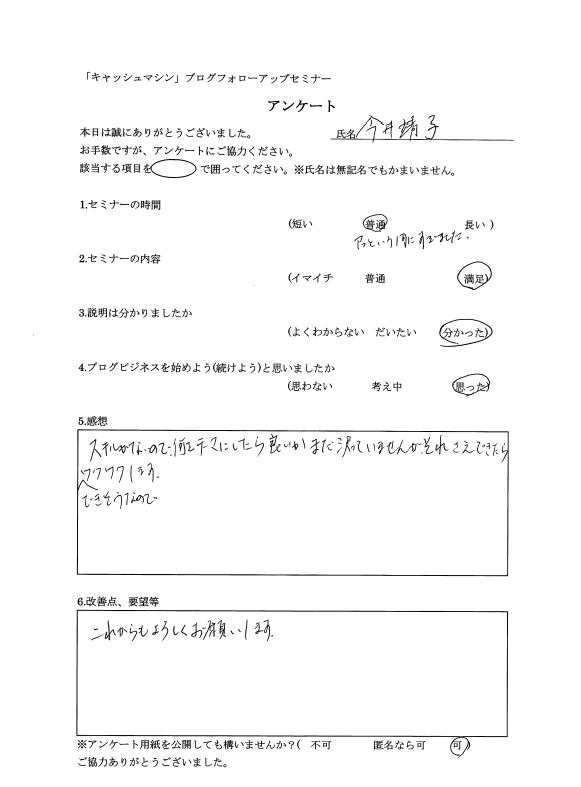 「キャッシュマシン」ブログフォローアップセミナー
アンケート
本日は誠にありがとうございました。
氏名 今井靖子
お手数ですが、アンケートにご協力ください。
該当する項目を で囲ってください。※氏名は無記名でもかまいません。
1.セミナーの時間
(短い 普通 長い )
アっという間にすぎました.
2.セミナーの内容
(イマイチ 普通 満足)
3.説明は分かりましたか
(よくわからない だいたい 分かった)
4.ブログビジネスを始めよう(続けよう)と思いましたか
(思わない 考え中 思った)
5.感想
スキルがないので、何をテーマにしたら良いかまだ決っていませんが、それさえできたら
ワクワクします.
できそうなので
6.改善点、要望等
これからもよろしくお願いします.
※アンケート用紙を公開しても構いませんか？( 不可 匿名なら可 可 )
ご協力ありがとうございました。